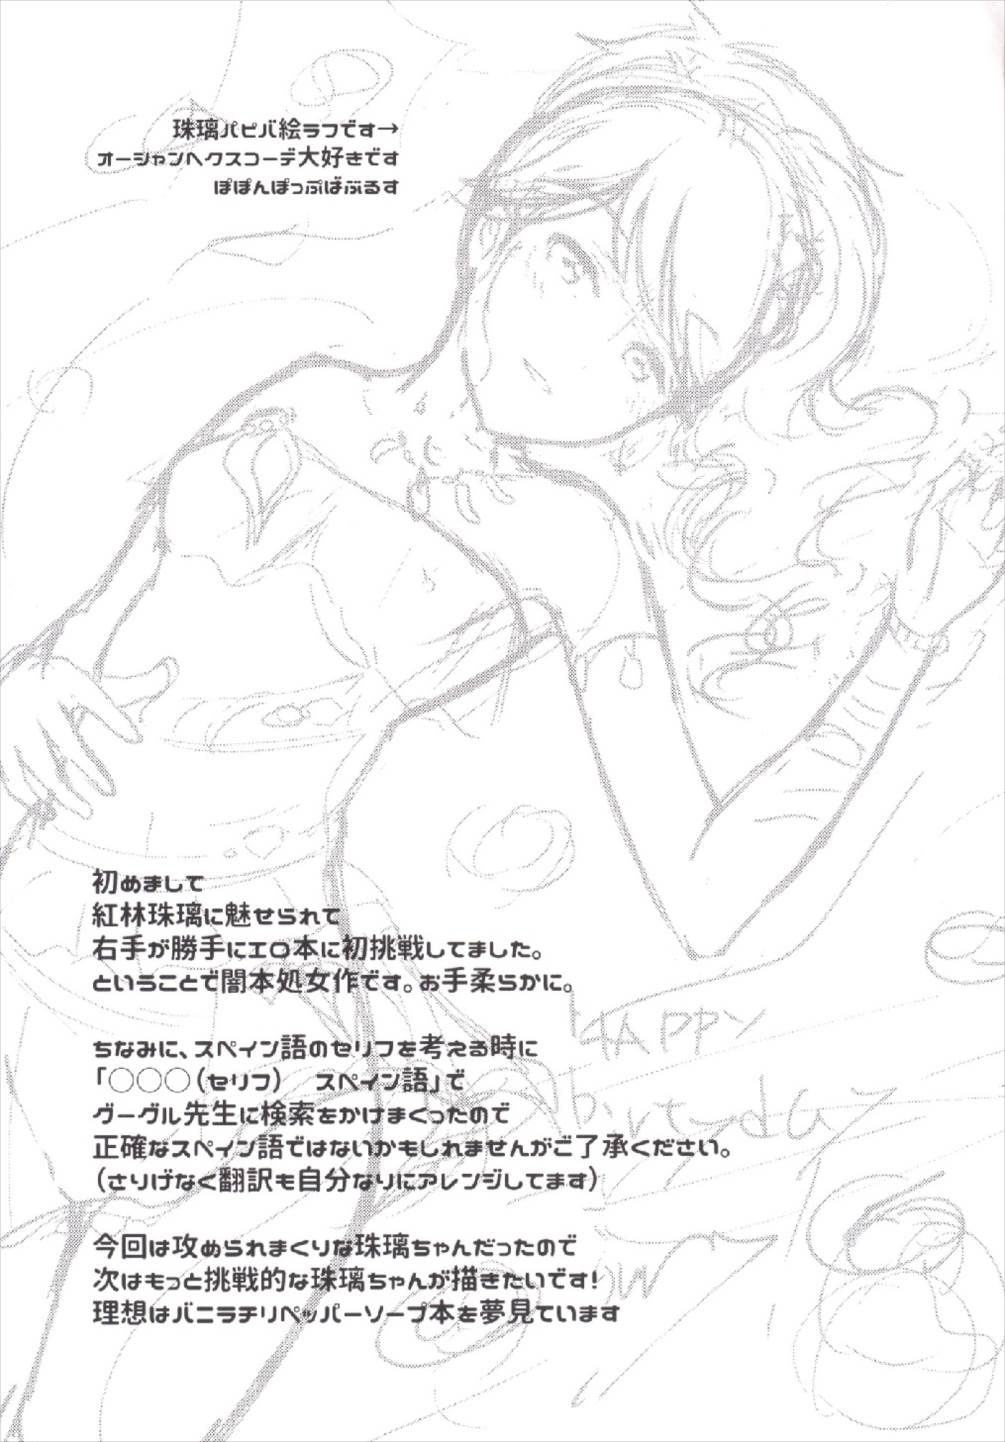 珠璃パピバ絵ラフです→
オーシャンヘクスコーデ大好きです
ぽぽんぽっぷばぶるす
初めまして
紅林珠璃に魅せられて
右手が勝手にエロ本に初挑戦してました。
ということで闇本処女作です。お手柔らかに。
ちなみに、スペイン語のセリフを考える時に
「○○○（セリフ）　スペイン語」で
グーグル先生に検索をかけまくったので
正確なスペイン語ではないかもしれませんがご了承ください。
（さりげなく翻訳も自分なりにアレンジしてます）
HAPPY
birtyday
今回は攻められまくりな珠璃ちゃんだったので
次はもっと挑戦的な珠璃ちゃんが描きたいです！
理想はバニラチリペッパーソープ本を夢見ています